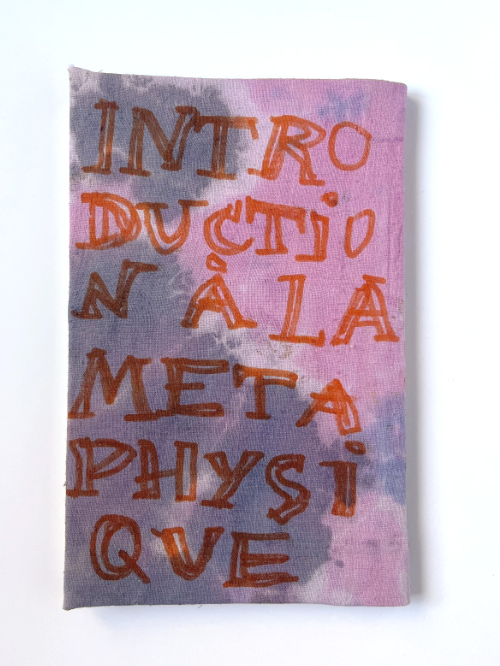 INTRO
DUCTIO
N À LA
META
PHYSI
QUE